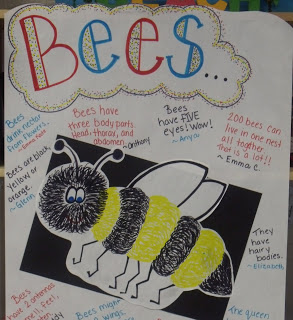 Bees...
Bees
drink nectar
from flowers.
Bees have
three body parts
Head, thorax, and
abdomen.
~Anthony
Bees
have FIVE
eyes! Wow!
~Anya
200 bees can
live in one nest
all together
that is a lot!!
~ Emma C.
Bees are black
yellow or
orange.
~Glenn
They
have hairy
bodies.
~Elizabeth
Bees
have 2 antennae
smell, feel,
Bees
wings.
The queen